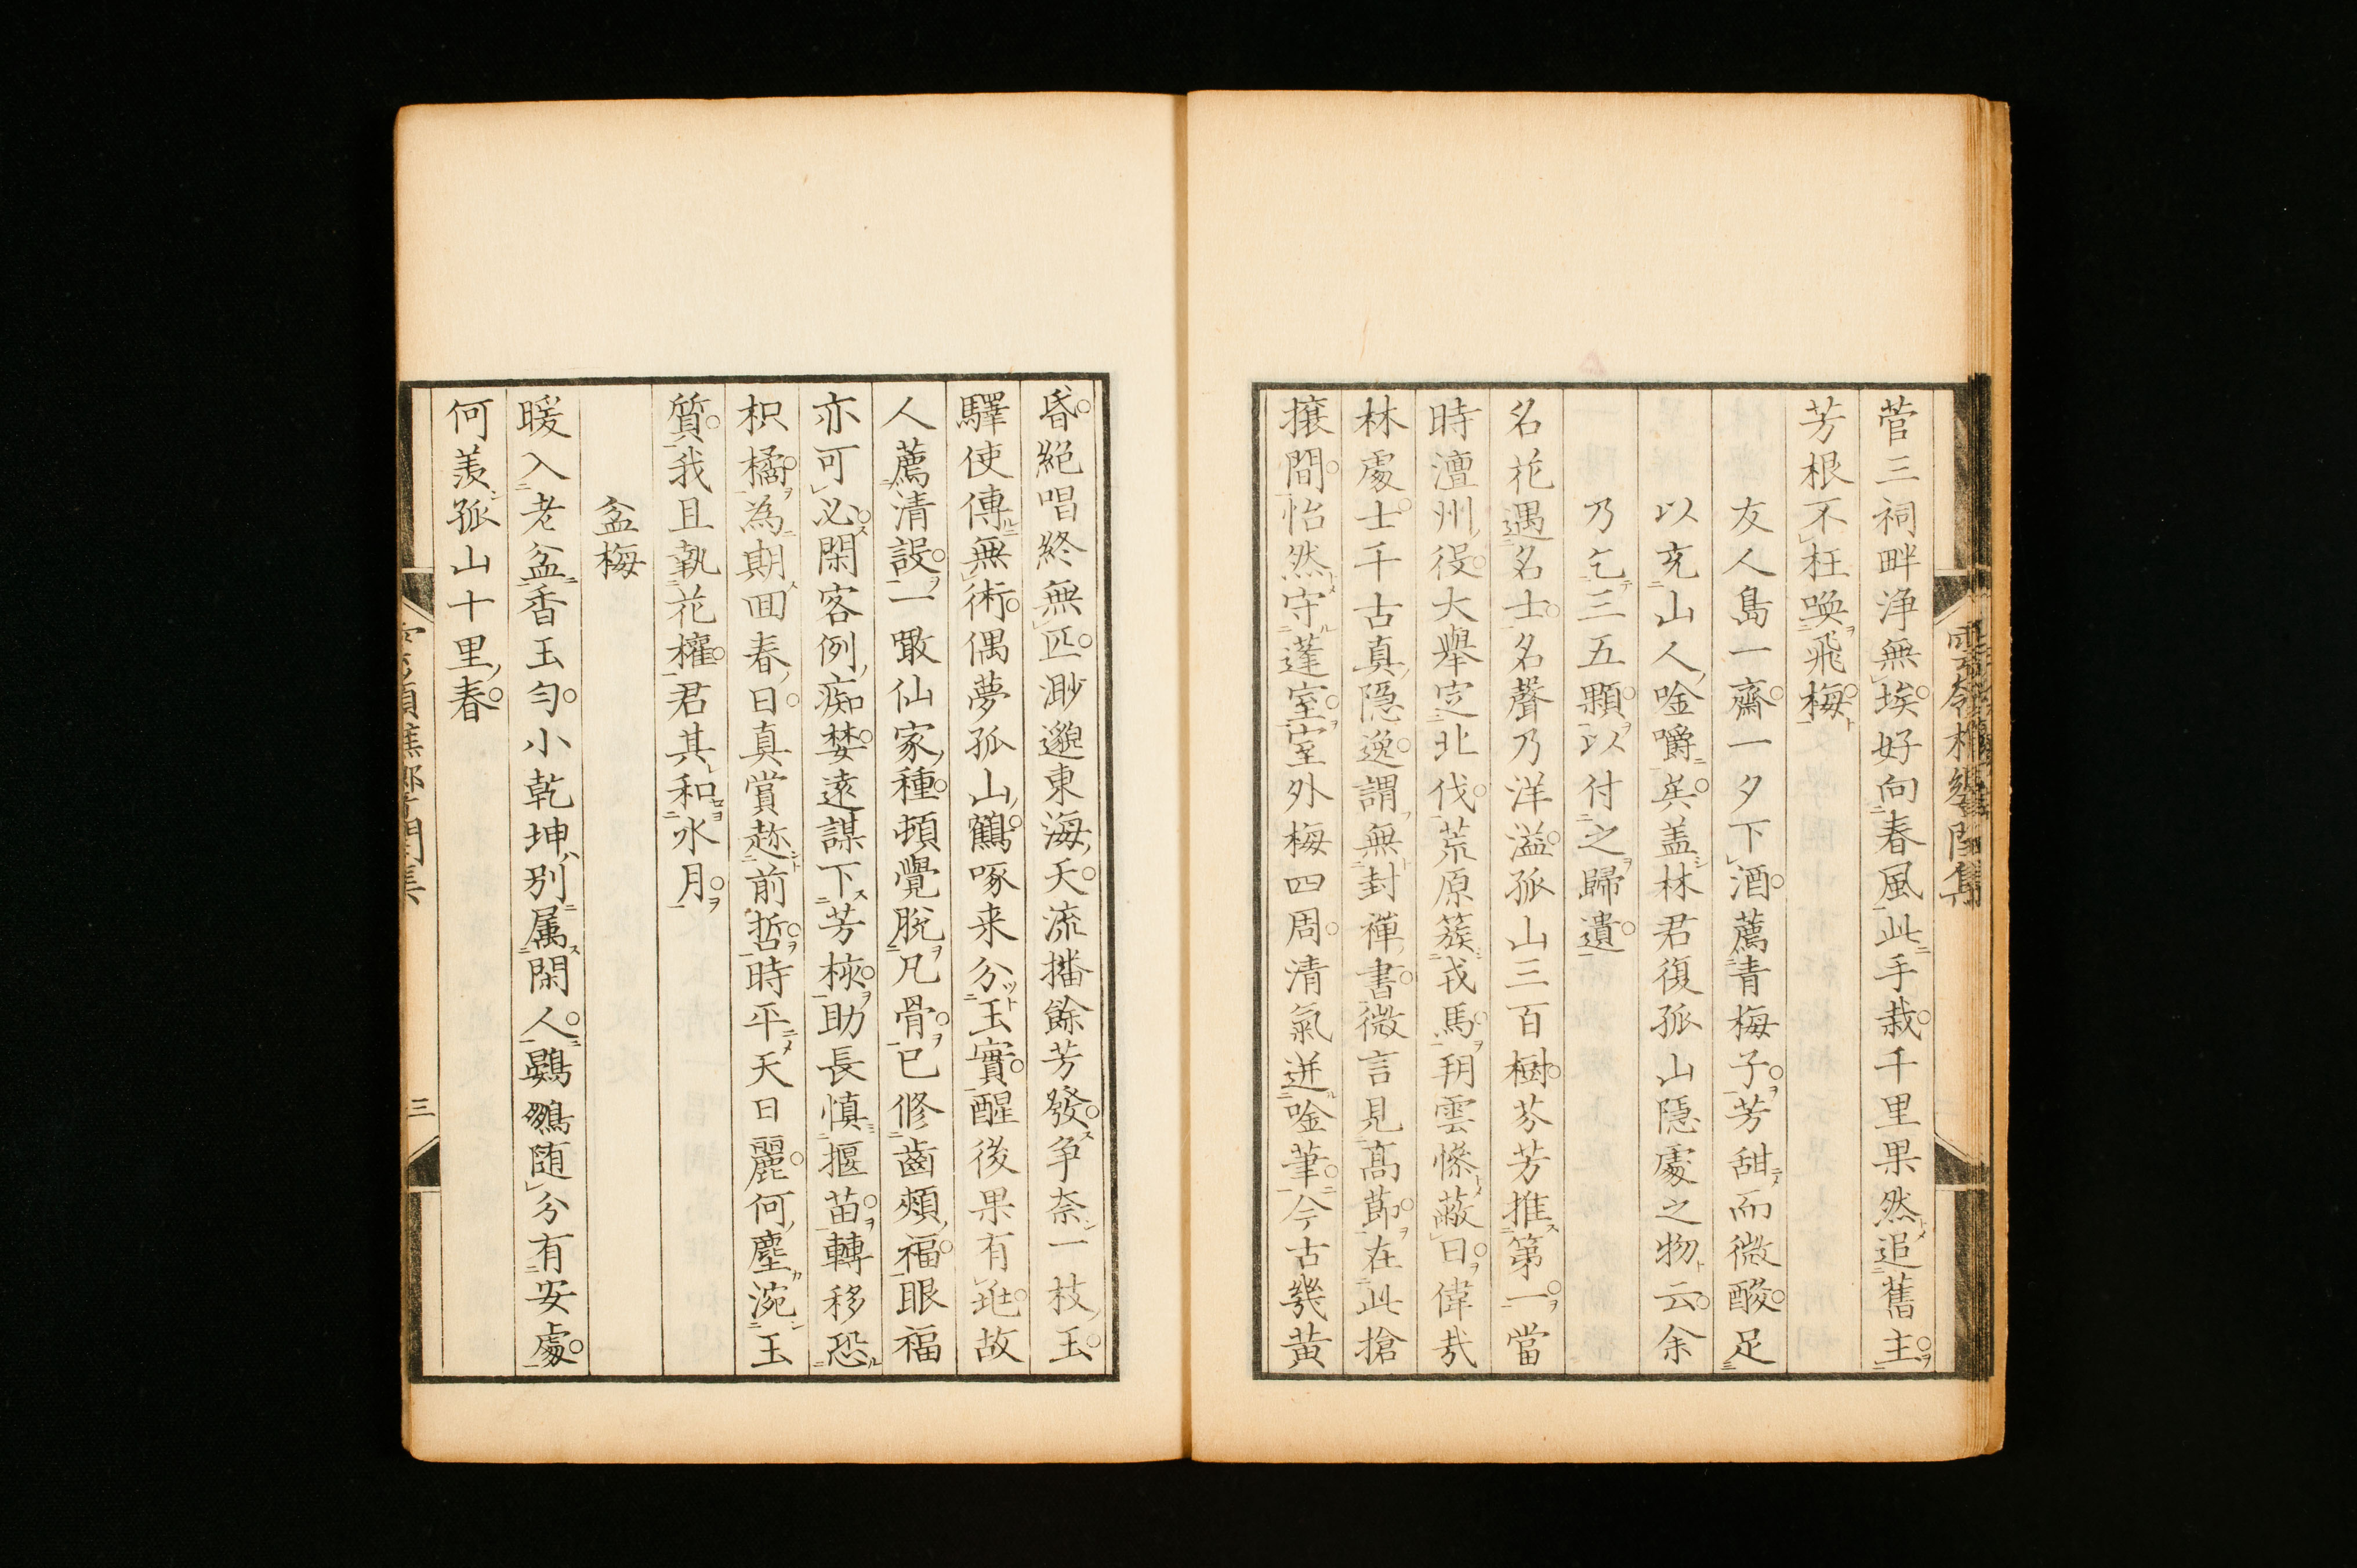 菅三祠畔浄無埃好向春風此手栽千里果然追舊主
芳根不枉喚飛梅
友人島一齋一夕下酒薦青梅子芳甜而微酸足
以充山人唫嚼矣盖林君復孤山隠處之物云余
乃乞三五顆以付之歸遺
名花遇名士名聲乃洋溢孤山三百樹芬芳推第一當
時澶州役大舉定北伐荒原簇戎馬朔雲慘蔽日偉哉
林處士千古真隠逸謂無封禅書微言見高節在此搶
攘間怡然守蓬室室外梅四周清氣迸唫筆今古幾黄
昏絕唱終無匹渺邈東海天流播餘芳發争奈一枝玉
驛使傳無術偶夢孤山鶴啄来分玉實醒後果有此故
人薦清設一噉仙家種頓覺脱凡骨已修齒頰福眼福
亦可必閑客例痴婪遠謀下芳核助長慎揠苗轉移恐
枳橘為期囬春日真賞趂前哲時平天日麗何塵涴玉
質我且執花權君其和水月
盆梅
暖入老盆香玉勻小乾坤別属閑人鷃鷚随分有安處
何羨孤山十里春
三